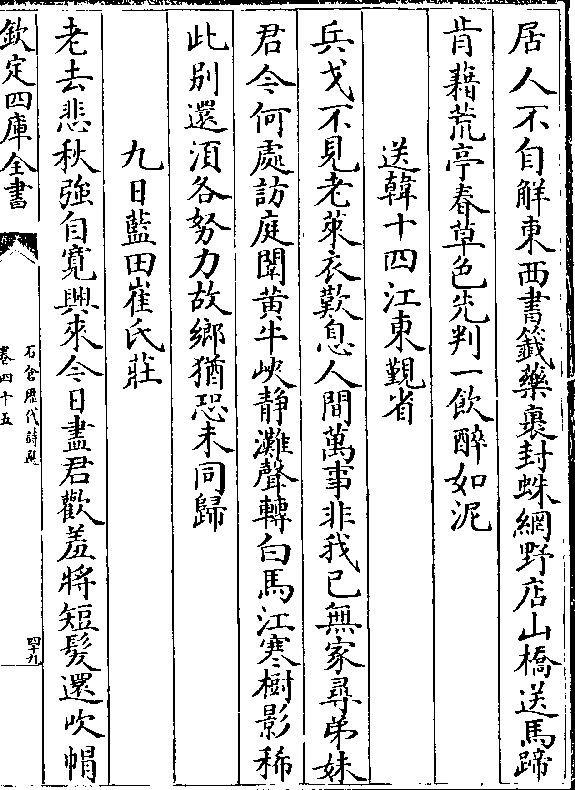 居人不自解東西書籤藥裹封蛛網野店山橋送馬蹄
肯藉荒亭春草色先判一飲醉如泥
送韓十四江東覲省
兵戈不見老萊衣歎息人間萬事非我已無家尋弟妹
君今何處訪庭闈黄牛峽静灘聲轉白馬江寒樹影稀
此别還須各努力故鄉猶恐未同歸
九日藍田崔氏莊
老去悲秋強自寛興來今日盡君歡羞將短髮還吹帽
欽定四庫全書
石倉歷代詩選
卷四十五
四十九